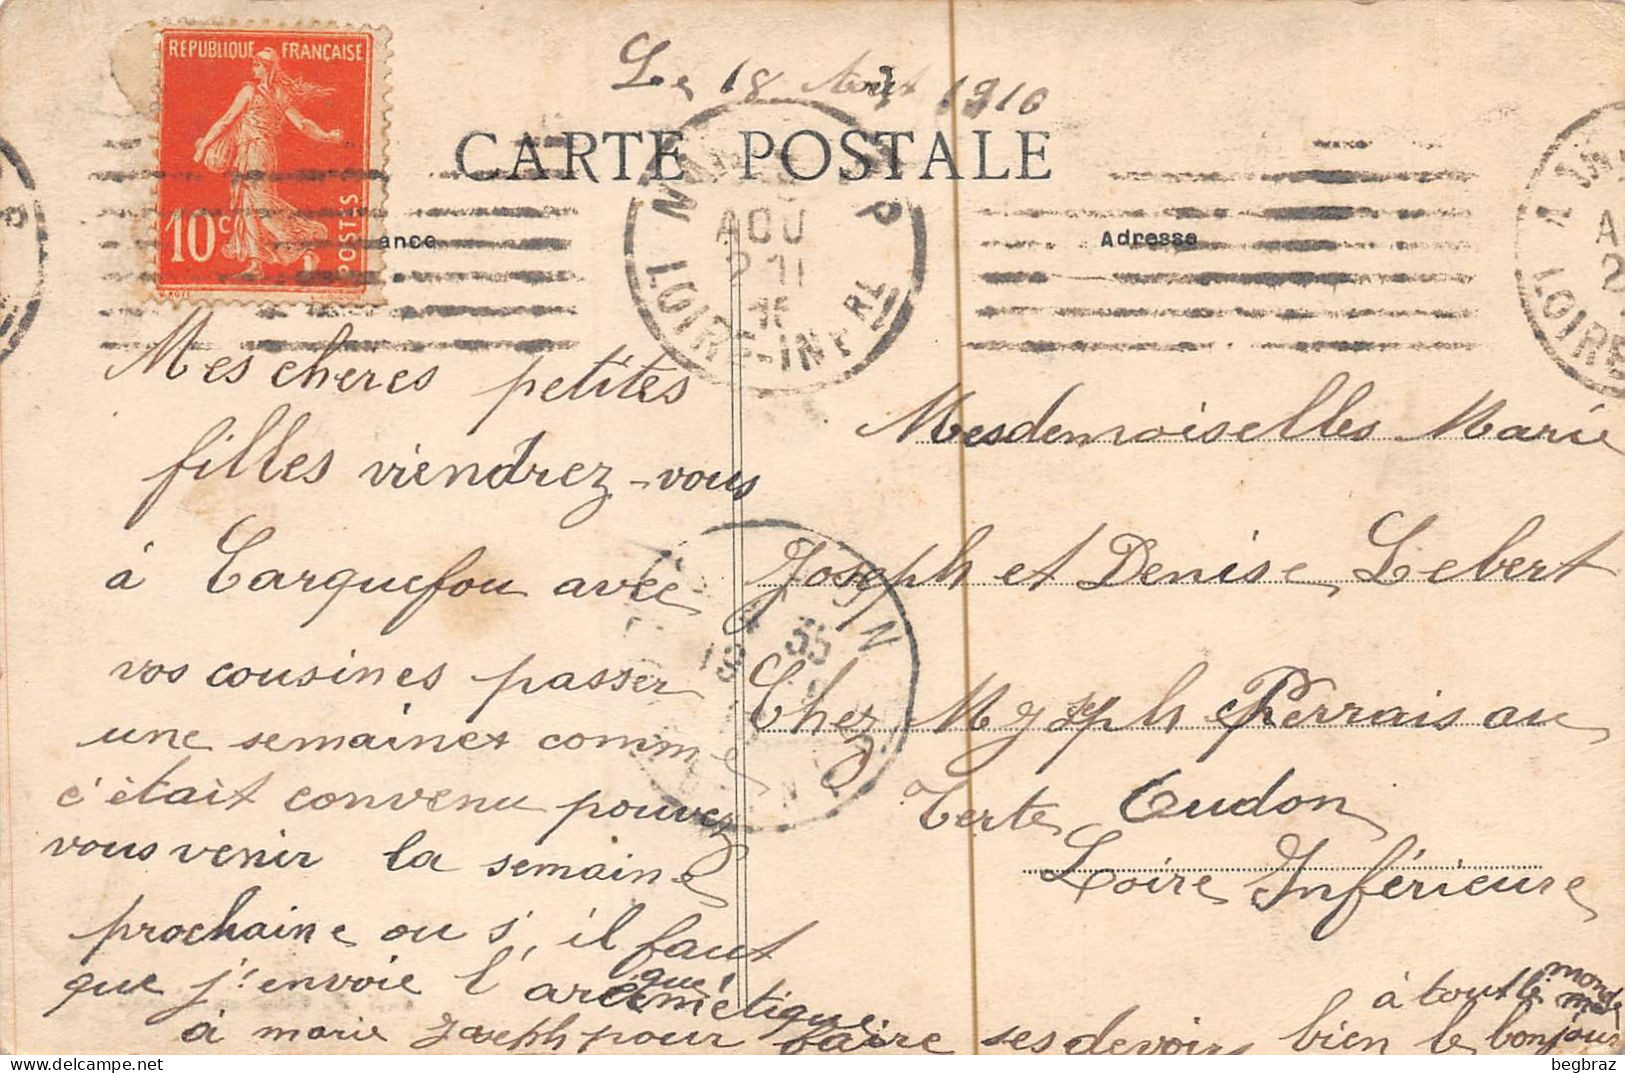 RÉPUBLIQUE FRANÇAISE
10c
POSTES
Le 18 Août 1910
CARTE POSTALE
ance
Adresse
AOU
LOIRE-INFRE
Mes cheres petites
filles viendrez-vous
à Carquefou avec
vos cousines passer
une semaines comme
c'était convenu pouvez
vous venir la semaine
prochaine ou s'il faut
que j'envoie l'aritmétique
à marie Joseph pour faire ses devoirs bien le bonjour
à tout le monde
Mesdemoiselles Marie
Joseph et Denise Lebert
Chez M Joseph Perraisau
Tertre Oudon
Loire Inférieure
begbraz